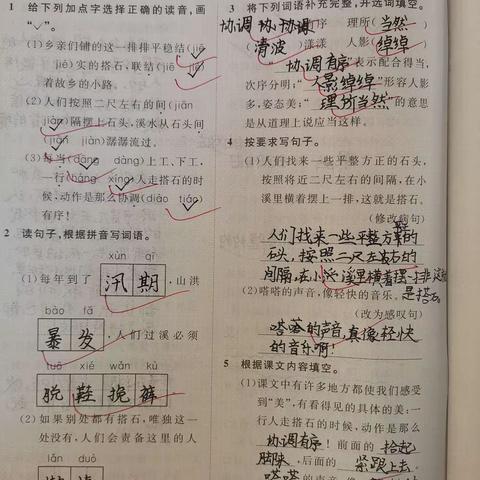 1 给下列加点字选择正确的读音,画
“✓”。
(1)乡亲们铺的这一排排平稳结(jiē
jiē)实的搭石,联结(jiē jié)
着故乡的小路。
(2)人们按照二尺左右的间(jiān
jiàn)隔摆上石头,溪水从石头间
(jiān jiàn)潺潺流过。
(3)每当(dāng dàng)上工、下工,
一行(háng xíng)人走搭石的时
候,动作是那么协调(diào tiáo)
有序!
2 读句子,根据拼音写词语。
xùn qī
(1)每年到了 汛期 ,山洪
bào fā
暴发 ,人们过溪必须
tuō xié wǎn kù
脱鞋挽裤
(2)如果别处都有搭石,唯独这一
处没有,人们会责备这里的人
lǎn duò
3 将下列词语补充完整,并选词填空。
协调 序 理所(当然)
(清波)漾漾 人影(绰绰)
“协调有序”表示配合得当,
次序分明;“人影绰绰”形容人影
多,姿态美;“理所当然”的意思
是从道理上说应当这样。
4 按要求写句子。
(1)人们找来一些平整方正的石头,
按照将近二尺左右的间隔,在小
溪里横着摆上一排,这就是搭石。
(修改病句)
人们找来一些平整方正的
石头,按照二尺左右的
间隔,在小溪里横着摆一排,这就
是搭石
(2)嗒嗒的声音,像轻快的音乐。
(改为感叹句)
嗒嗒的声音,真像轻快
的音乐啊!
5 根据课文内容填空。
(1)课文中有许多地方都使我们感受
到“美”,有看得见的具体的美:一
行人走搭石的时候,动作是那么
协调有序!前面的 抬起
脚来 ,后面的 紧跟上去
嗒嗒的声音,像